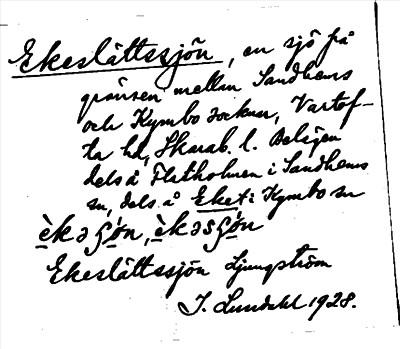 Ekeslättssjön, en sjö på
gränsen mellan Sandhems
och Kymbo socknar, Vartof-
ta hd, Skarab. l. Belägen
dels å Flatholmen i Sandhems
sn, dels å Eket i Kymbo sn
Ekeslättssjön Ljungström
J. Lundahl 1928.